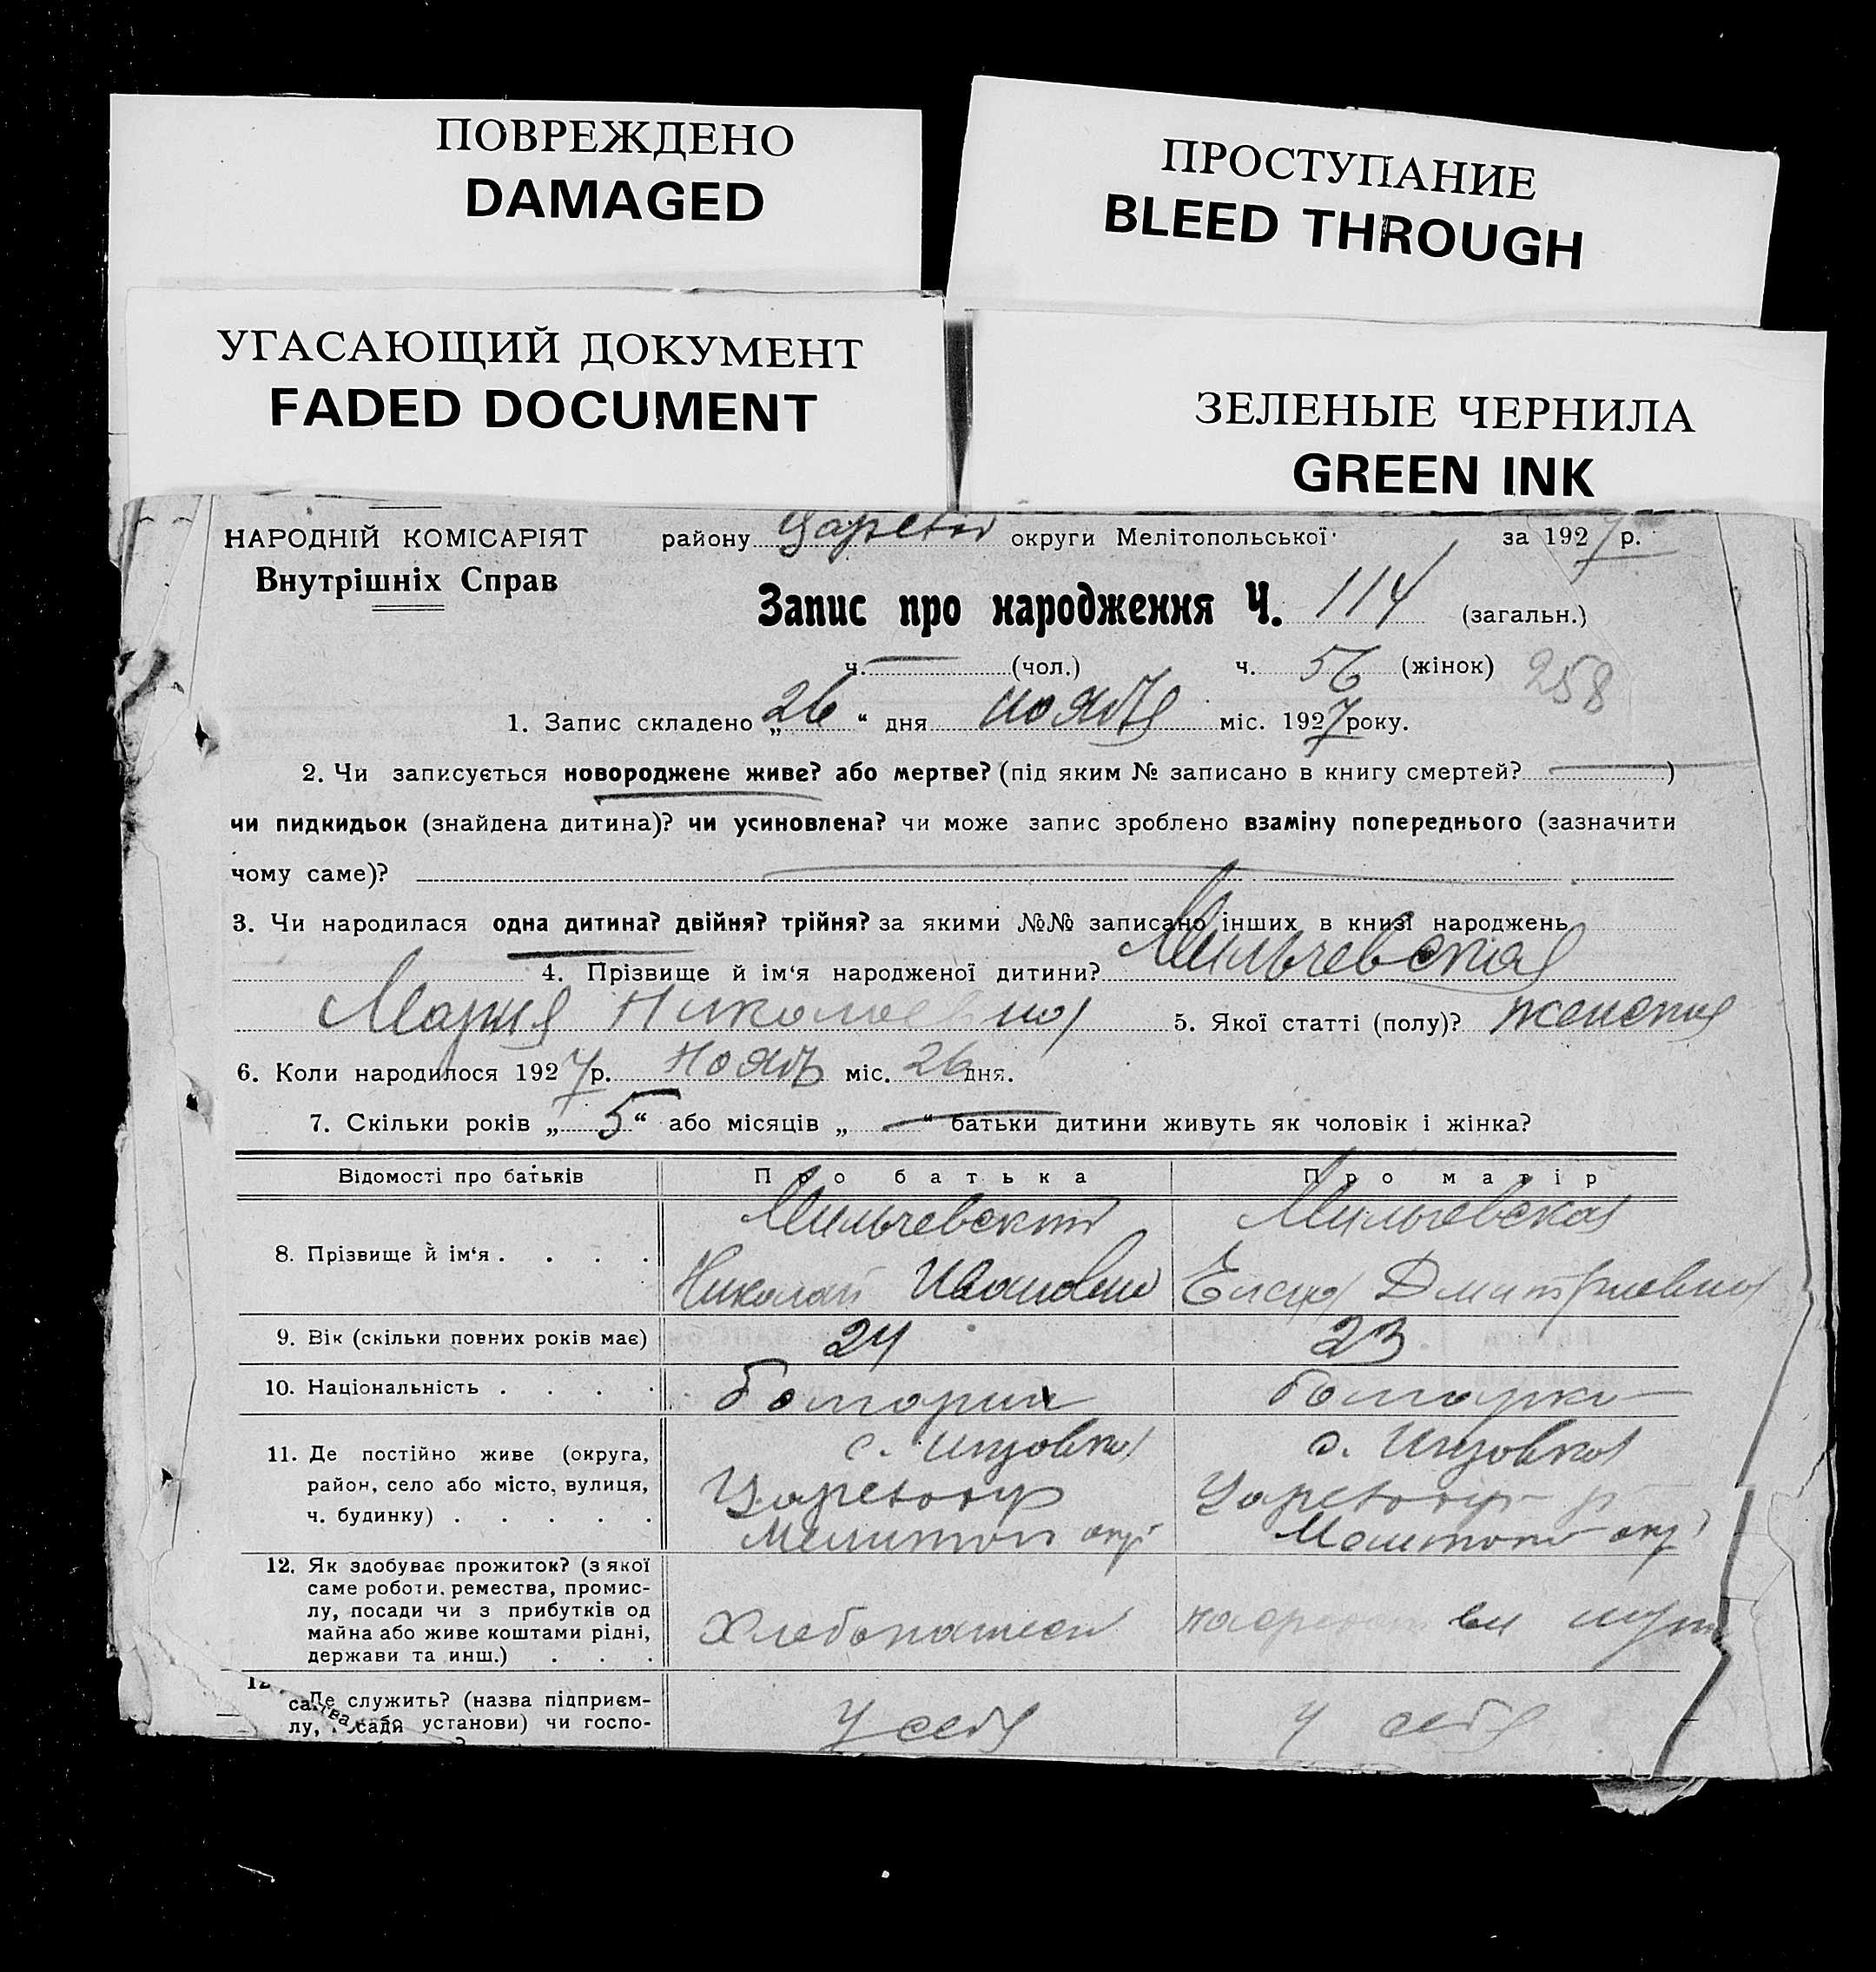 ПОВРЕЖДЕНО
DAMAGED
ПРОСТУПАНИЕ
BLEED THROUGH
УГАСАЮЩИЙ ДОКУМЕНТ
FADED DOCUMENT
ЗЕЛЕНЫЕ ЧЕРНИЛА
GREEN INK
НАРОДНІЙ КОМІСАРІЯТ
Внутрішніх Справ
району округи Мелітопольської за 1927 р.
Запис про народження Ч. 114 (загальн.)
ч. — (чол.) ч. 56 (жінок) 258
1. Запис складено „26“ дня нояб міс. 1927 року.
2. Чи записується новороджене живе? або мертве? (під яким № записано в книгу смертей? —)
чи пидкидьок (знайдена дитина)? чи усиновлена? чи може запис зроблено взаміну попереднього (зазначити
чому саме)? —
3. Чи народилася одна дитина? двійня? трійня? за якими №№ записано інших в книзі народжень
4. Прізвище й ім‘я народженої дитини? Мильчевская
Мария Николаевна 5. Якої статті (полу)? женская
6. Коли народилося 1927 р. нояб міс. 26 дня.
7. Скільки років „5“ або місяців „—“ батьки дитини живуть як чоловік і жінка?
Відомості про батьків Про батька Про матір
8. Прізвище й ім‘я . . . . Мильчевский Мильчевская
Николай Иванович Елена Дмитриевна
9. Вік (скільки повних років має) 24 23
10. Національність . . . . болгарин болгарка
11. Де постійно живе (округа, район, село або місто, вулиця, ч. будинку) . . . . .
с. Инзовка
Мелитоп окр
с. Инзовка
Мелитоп окр
12. Як здобуває прожиток? (з якої
саме роботи, ремества, промис-
лу, посади чи з прибутків од
майна або живе коштами рідні,
держави та инш.) . . .
Хлебопашец
Де служить? (назва підприєм-
установи) чи госпо-
У себя у себя